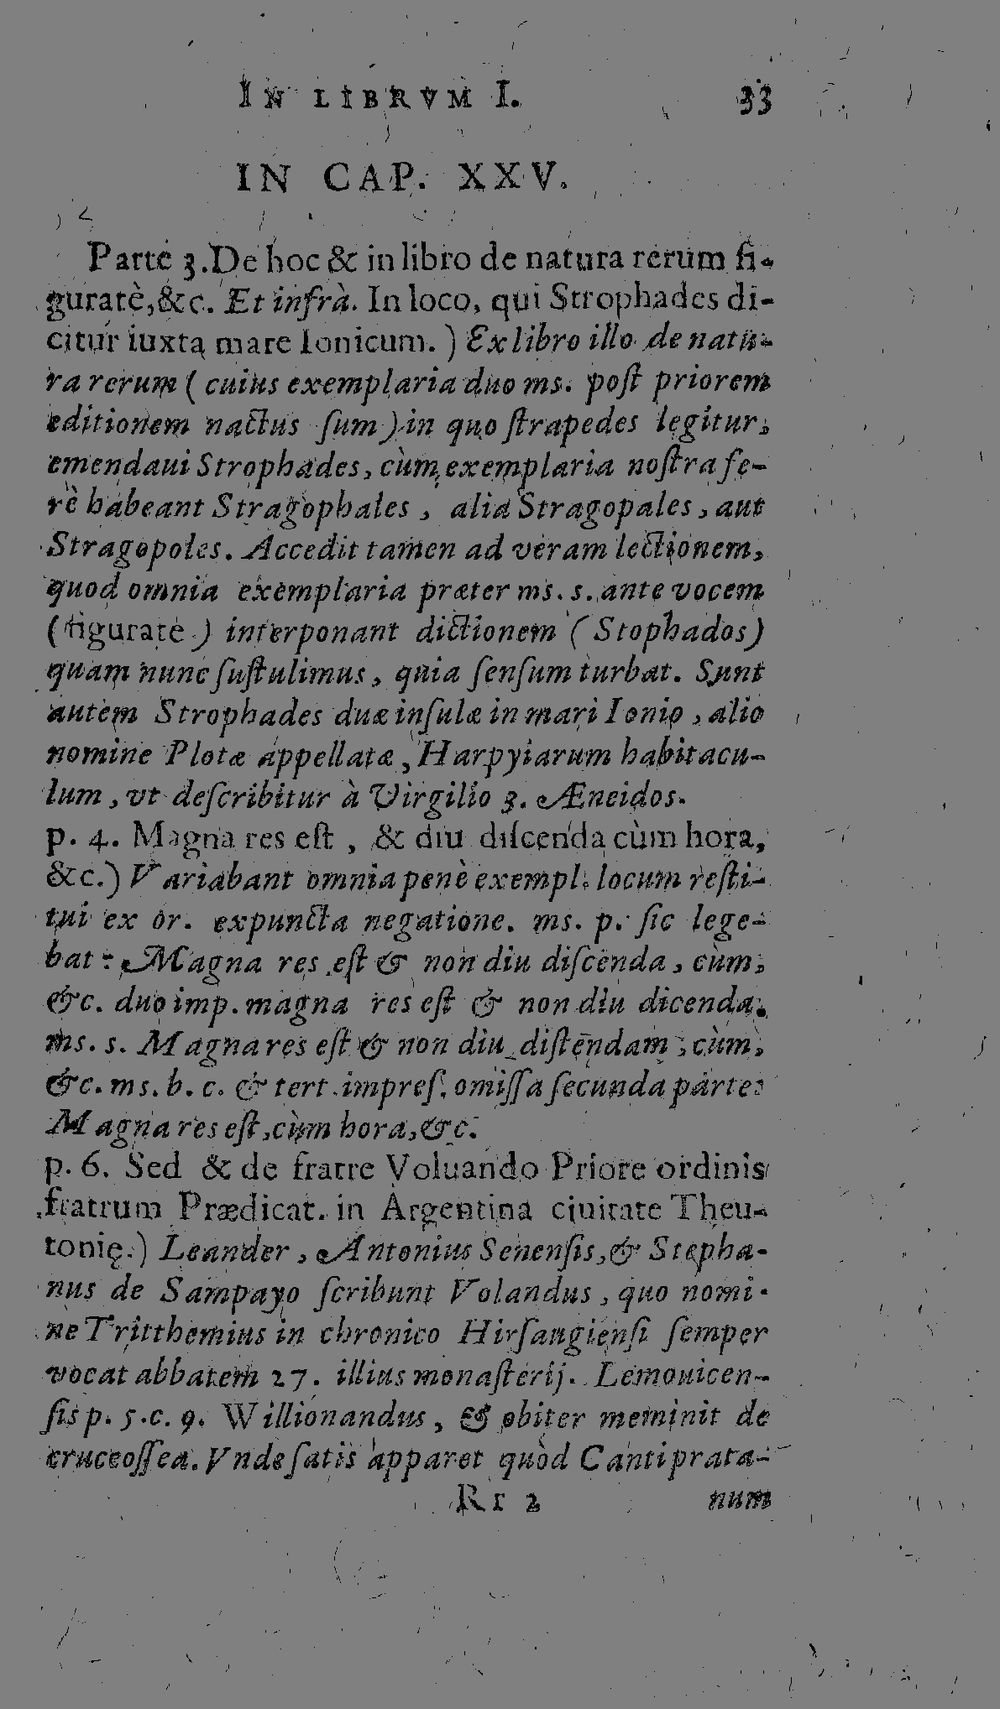 IN LIBRVM I. 33
IN CAP. XXV.
Parte 3. De hoc & in libro de natura rerum fi-
guratè, &c. Et infrà. In loco, qui Strophades di-
citur iuxta mare Ionicum. ) Ex libro illo de natu-
ra rerum ( cuius exemplaria duo ms. poſt priorem
editionem nactus ſum ) in quo ſtrapedes legitur,
emendaui Strophades, cùm exemplaria noſtra fe-
rè habeant Stragophales, alia Stragopales, aut
Stragopoles. Accedit tamen ad veram lectionem,
quod omnia exemplaria præter ms. s. ante vocem
( figuratè ) interponant dictionem ( Stophados)
quam nunc ſuſtulimus, quia ſenſum turbat. Sunt
autem Strophades duæ inſulæ in mari Ionio, alio
nomine Plotæ appellatæ, Harpyiarum habitacu-
lum, vt deſcribitur à Virgilio 3. Æneidos.
p. 4. Magna res eſt, & diu diſcenda cùm hora,
&c.) Variabant omnia penè exempl. locum reſti-
tui ex or. expuncta negatione. ms. p. ſic lege-
bat: Magna res eſt & non diu diſcenda, cùm,
&c. duo imp. magna res eſt & non diu dicenda.
ms. s. Magna res eſt & non diu diſtendam, cùm,
&c. ms. b. c. & tert. impreſ. omiſſa ſecunda parte:
Magna res eſt, cùm hora, &c.
p. 6. Sed & de fratre Voluando Priore ordinis
fratrum Prædicat. in Argentina ciuitate Theu-
tonię.) Leander, Antonius Senenſis, & Stepha-
nus de Sampayo ſcribunt Volandus, quo nomi-
ne Tritthemius in chronico Hirſaugienſi ſemper
vocat abbatem 27. illius monaſterij. Lemouicen-
ſis p. 5. c. 9. Willionandus, & obiter meminit de
cruce oſſea. Vnde ſatis apparet quòd Cantiprata-
Rr 2 num